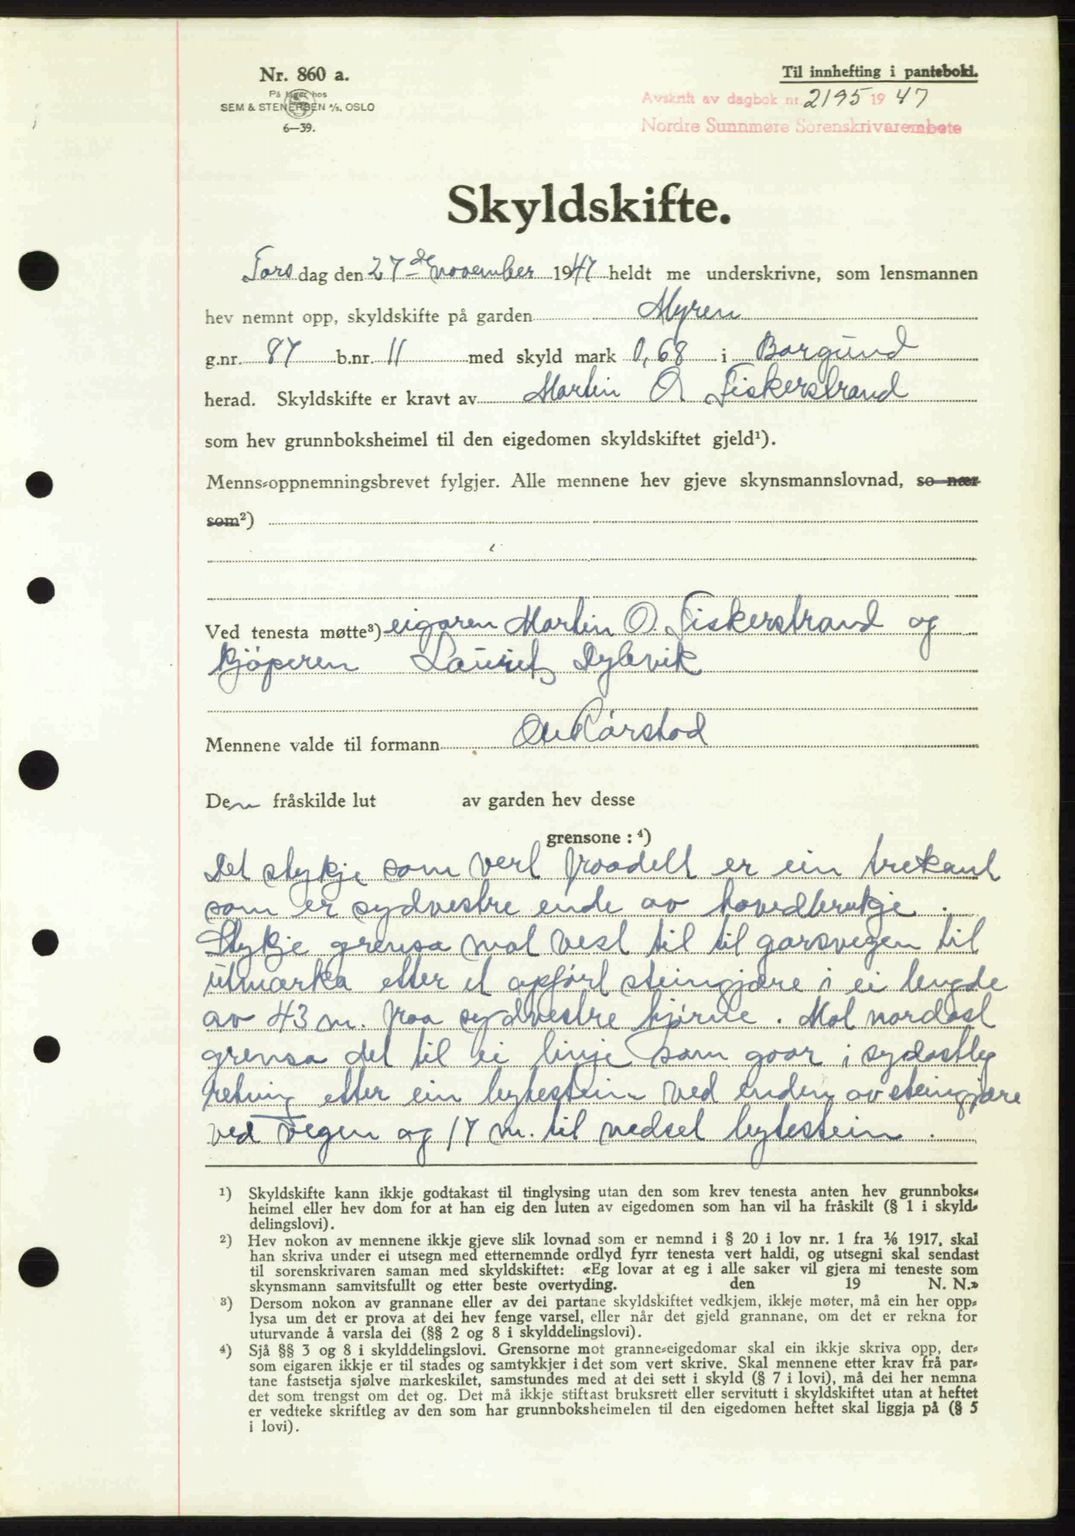 Nr. 860 a.
På lager hos
SEM & STENERSEN A/S. OSLO
6—39.
Til innhefting i pantebok.
Avskrift av dagbok nr. 2195 1947
Nordre Sunnmøre Sorenskrivarembete
Skyldskifte.
Torsdag den 27de november 1947 heldt me underskrivne, som lensmannen
hev nemnt opp, skyldskifte på garden Myren
g.nr. 87 b.nr. 11 med skyld mark 0,68 i Borgund
herad. Skyldskifte er kravt av Martin O Fiskerstrand
som hev grunnboksheimel til den eigedomen skyldskiftet gjeld¹).
Menns-oppnemningsbrevet fylgjer. Alle mennene hev gjeve skynsmannslovnad, so nær
som²)
Ved tenesta møtte³) eigaren Martin O. Fiskerstrand og
kjøperen Laurits Dylevik
Mennene valde til formann Ole Kårstad
Den fråskilde lut av garden hev desse
grensone : ⁴)
Det stykje som vert fraadelt er ein trekant
som er sydvestre ende av hovedbrukje .
Stykje grensa mot vest til til garsvegen til
utmarka etter et opført steingjære i ei lengde
av 43 m. fraa sydvestre hjørne . Mot nordost
grensa det til ei linje som goar i sydostleg
retning etter ein bytestein ved enden av steingjære
ved vegen og 17 m. til nedset bytestein .
¹) Skyldskifte kann ikkje godtakast til tinglysing utan den som krev tenesta anten hev grunnboks-
heimel eller hev dom for at han eig den luten av eigedomen som han vil ha fråskilt (§ 1 i skyld-
delingslovi).
²) Hev nokon av mennene ikkje gjeve slik lovnad som er nemnd i § 20 i lov nr. 1 fra ⅙ 1917, skal
han skriva under ei utsegn med etternemnde ordlyd fyrr tenesta vert haldi, og utsegni skal sendast
til sorenskrivaren saman med skyldskiftet: «Eg lovar at eg i alle saker vil gjera mi teneste som
skynsmann samvitsfullt og etter beste overtyding. den 19 N. N.»
³) Dersom nokon av grannane eller av dei partane skyldskiftet vedkjem, ikkje møter, må ein her opp-
lysa um det er prova at dei hev fenge varsel, eller når det gjeld grannane, om det er rekna for
uturvande å varsla dei (§§ 2 og 8 i skylddelingslovi).
⁴) Sjå §§ 3 og 8 i skylddelingslovi. Grensorne mot granne-eigedomar skal ein ikkje skriva opp, der-
som eigaren ikkje er til stades og samtykkjer i det som vert skrive. Skal mennene etter krav frå par-
tane fastsetja sjølve markeskilet, samstundes med at dei sett i skyld (§ 7 i lovi), må dei her nemna
det som trengst om det og. Det må ikkje stiftast bruksrett eller servitutt i skyldskiftet utan at heftet
er vedteke skriftleg av den som har grunnboksheimelen til den eigedomen heftet skal liggja på (§ 5
i lovi).